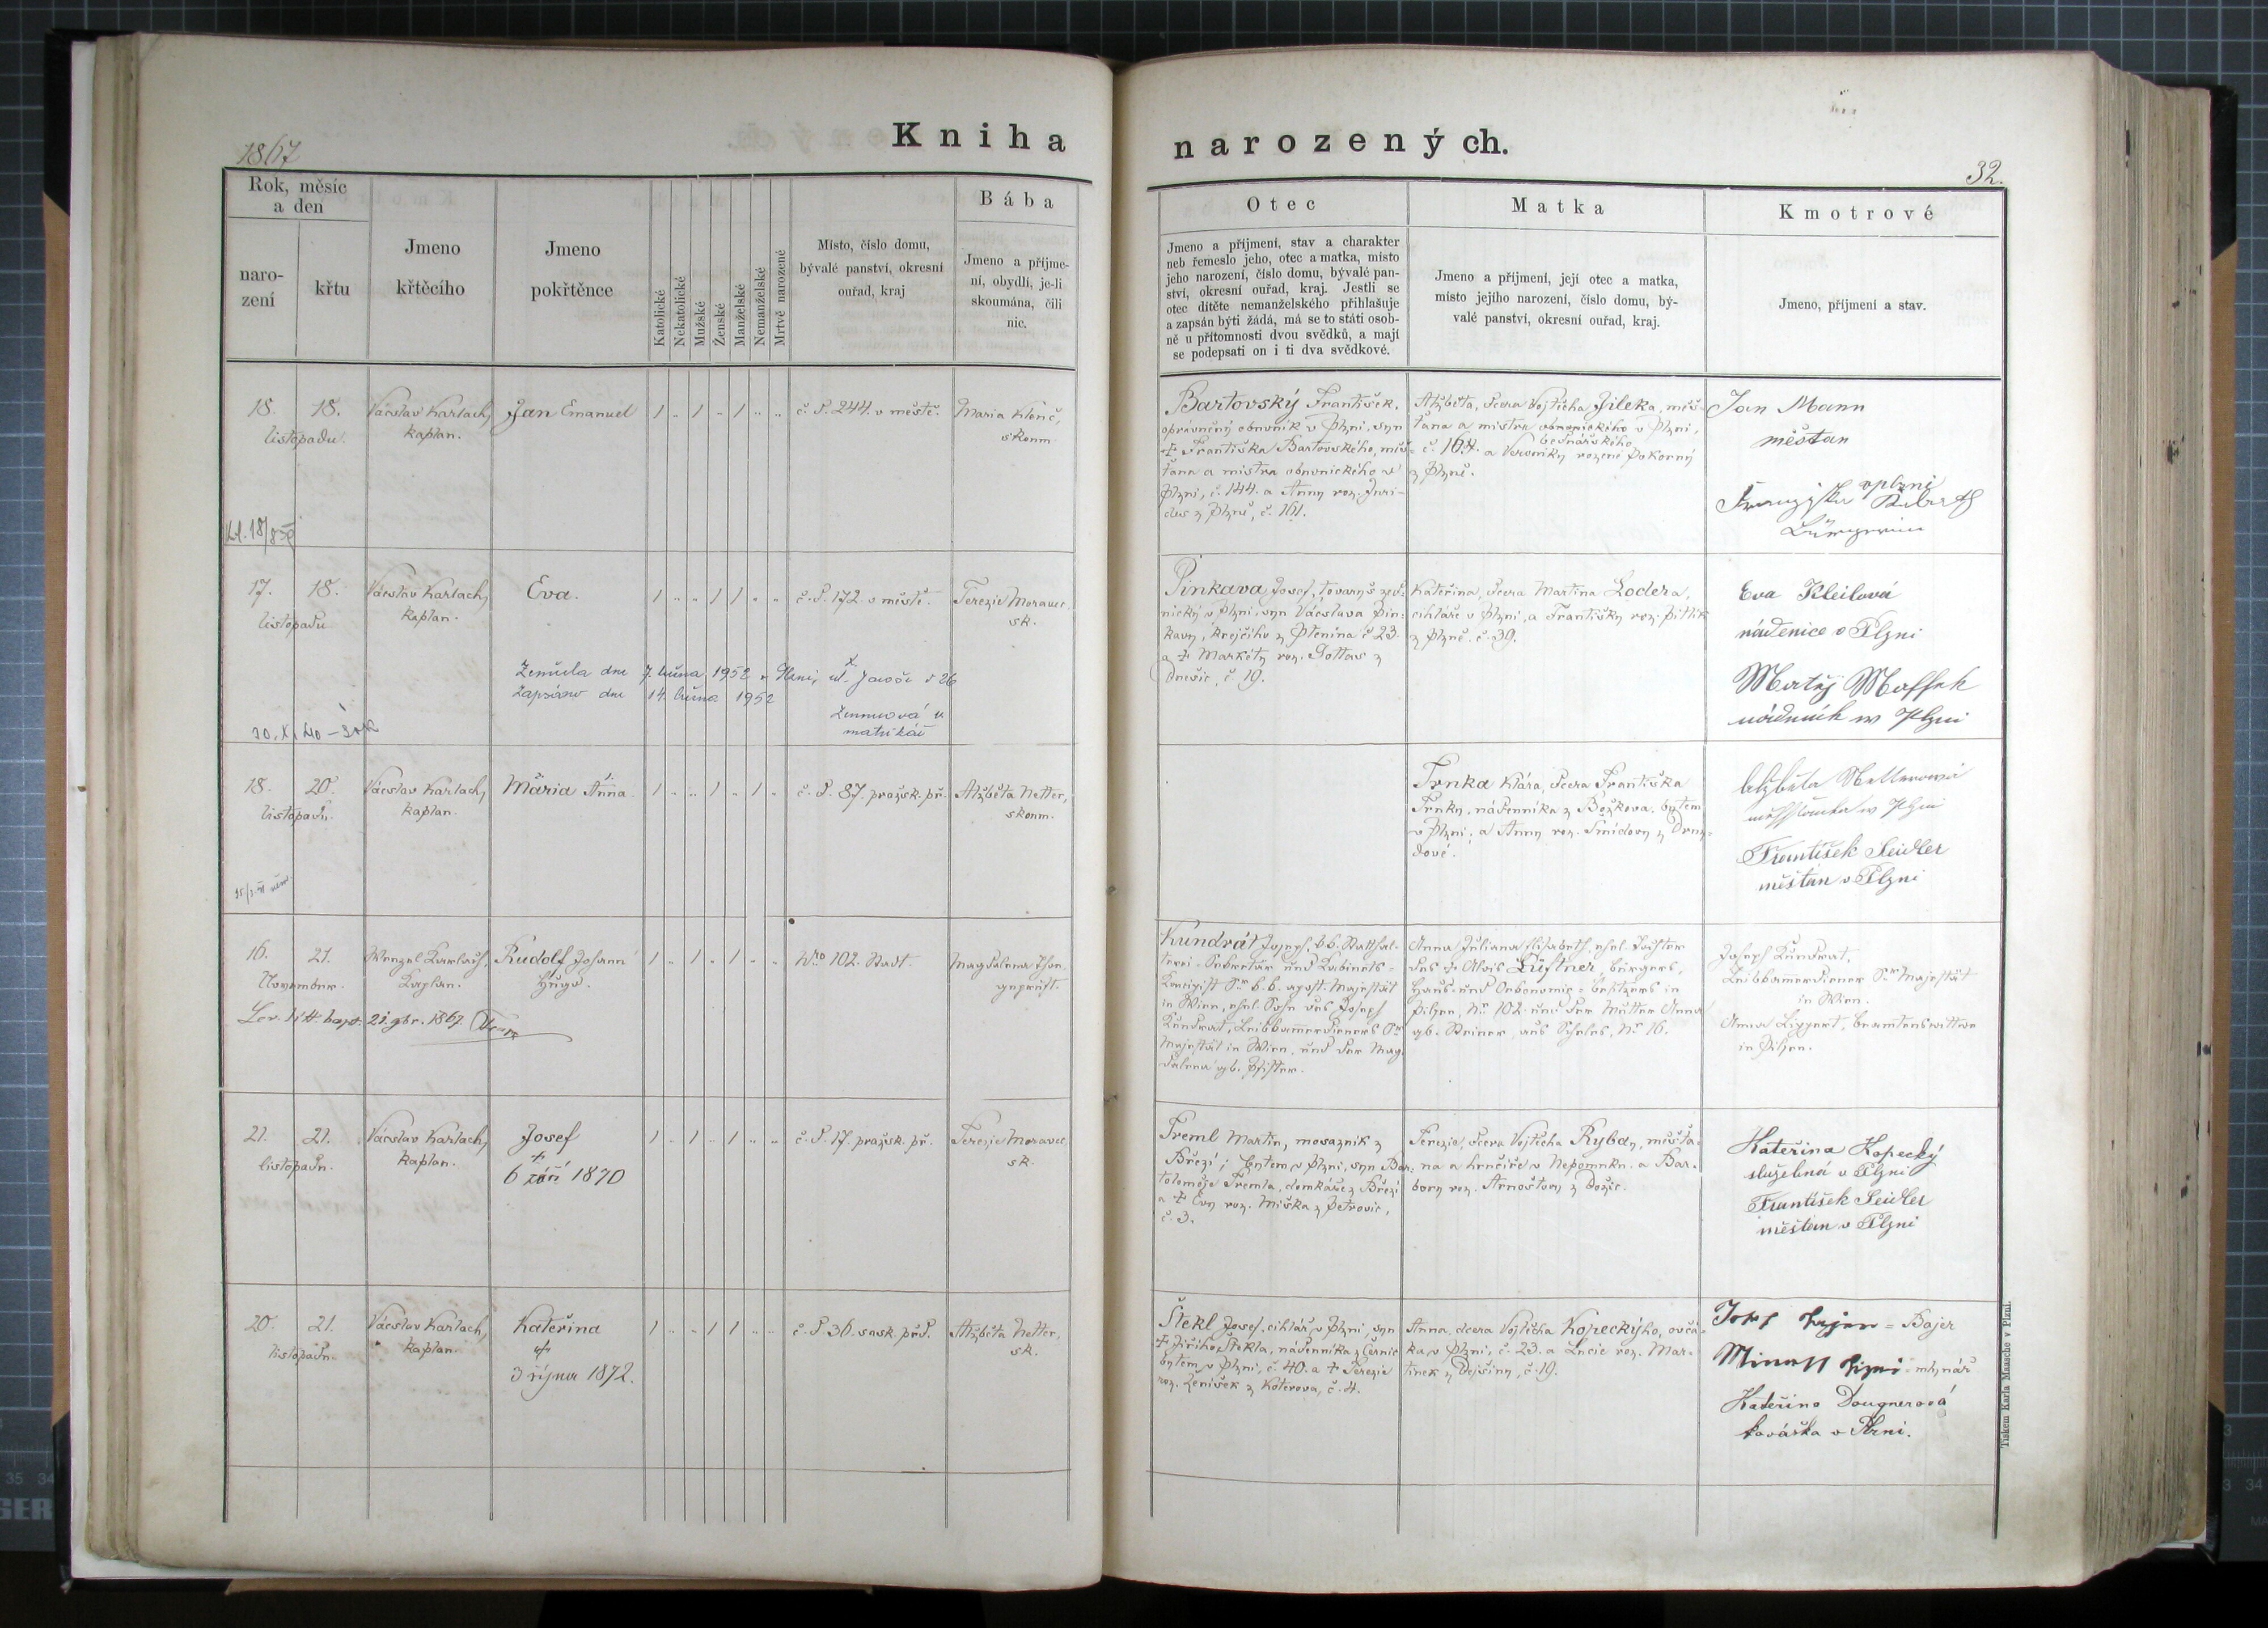 Kniha
narozených.
1867
32.
Rok, měsíc
a den
naro-
zení
křtu
Jmeno
křtěcího
Jmeno
pokřtěnce
Katolické
Nekatolické
Mužské
Ženské
Manželské
Nemanželské
Mrtvě narozené
Místo, číslo domu,
bývalé panství, okresní
ouřad, kraj
Bába
Jmeno a příjme-
ní, obydlí, je-li
skoumána, čili
nic.
Otec
Jmeno a příjmení, stav a charakter
neb řemeslo jeho, otec a matka, místo
jeho narození, číslo domu, bývalé pan-
ství, okresní ouřad, kraj. Jestli se
otec dítěte nemanželského přihlašuje
a zapsán býti žádá, má se to státi osob-
ně u přítomnosti dvou svědků, a mají
se podepsati on i ti dva svědkové.
Matka
Jmeno a příjmení, její otec a matka,
místo jejího narození, číslo domu, bý-
valé panství, okresní ouřad, kraj.
Kmotrové
Jmeno, příjmení a stav.
18. 18.
listopadu.
Václav Karlach,
kaplan.
Jan Emanuel
1 „ 1 „ 1 „ „
č. d. 244. v městě.
Maria Klenč,
skoum.
Bartovský František,
oprávněný obuvník v Plzni, syn
+ Františka Bartovského, měš-
ťana a mistra obuvnického v
Plzni, č. 144. a Anny roz.
z Plzně, č. 161.
Alžběta, dcera Vojtěcha Jíleka, měš-
ťana a mistra obuvnického v Plzni,
bednářského
č. 164. a Veroniky rozené Pokorný
z Plzně.
Jan Mann
měštan
v plzni
17. 18.
listopadu
Václav Karlach,
kaplan.
Eva.
1 „ „ 1 1 „ „
č. d. 172. v městě.
Terezie Moravec,
sk.
Zemřela dne 7. února 1952 v Plzni, ul.
zapsáno dne 14. února 1952
matrikář
Pinkava Josef, tovaryš zed-
nický v Plzni, syn Václava Pin-
kavy, krejčího z Ptenína č 23.
a + Markéty roz. Gottas z
Dnešic, č 19.
Kateřina, dcera Martina Lodera,
cihláře v Plzni, a Františky roz. Pittik
z Plzně. č. 39.
Eva Kleilová
nádenice v Plzni
Matěj
nádeník w Plzni
18. 20.
listopadu.
Václav Karlach,
kaplan.
Maria Anna.
1 „ „ 1 „ 1 „
č. d. 87. pražsk. př.
Alžběta Netter,
skoum.
Trnka Klára, dcera Františka
Trnky, nádenníka z Božkova, bytem
v Plzni; a Anny roz. Šmídovy z Druz-
dové.
Alžběta Netterová
w Plzni
František Seidler
měštan v Plzni
16. 21.
November.
Wenzel Karlach,
Kaplan.
Rudolf Johann
Hugo.
1 „ 1 „ 1 „ „
Nro 102. Stadt.
Magdalena
geprüft.
21. 9br. 1867.
Kundrát Joseph, k.k. Statthal-
terei-Sekretär und Kabinets-
Koncipist Sr k. k. apost. Majestät
in Wien, ehel. Sohn des Joseph
Kundrat, Leibkammerdieners Sr
Majestät in Wien, und der Mag-
dalena gb. Pfister.
Anna Juliana Elisabeth, ehel. Tochter
des + Alois Lüftner, Bürgers,
Haus- und Oekonomie-Besitzers in
Pilsen, Nr 102. und der Mutter Anna
gb. Steiner, aus Scheles, Nr 16.
Joseph Kundrat,
Leibkammerdiener Sr Majestät
in Wien.
Anna Lippert, Beamtenswittwe
in Pilsen.
21. 21.
listopadu.
Václav Karlach,
kaplan.
Josef
+
6 září 1870
1 „ 1 „ 1 „ „
č. d. 17. pražsk. př.
Terezie Moravec,
sk.
Treml Martin, mosazník z
Březí; bytem v Plzni, syn Bar-
toloměje Tremla, domkáře z Březí
a + Evy roz. Miška z Petrovic,
č. 3.
Terezie, dcera Vojtěcha Ryby, měšťa-
na a hrnčíře v Nepomuku. a Bar-
bory roz. Arnoštovy z Dožic.
Kateřina Kopecký
služebná v Plzni
František Seidler
měštan v Plzni
20. 21.
listopadu.
Václav Karlach,
kaplan.
Kateřina
+
3 října 1872.
1 „ „ 1 1 „ „
č. d. 36. sask. před.
Alžběta Netter,
sk.
Štekl Josef, cihlář v Plzni, syn
+ Jiřího Štekla, nádenníka z Černic
bytem v Plzni, č. 40. a + Terezie
roz. Zeníšek z Koterova, č. 4.
Anna, dcera Vojtěcha Kopeckýho, ovčá-
ka v Plzni, č. 23. a Lucie roz. Mar-
tinek z Dejšiny, č. 19.
= Bajer
= mlynář
Kateřina Dougnerová
kovářka v Plzni.
Tiskem Karla Maasche v Plzni.